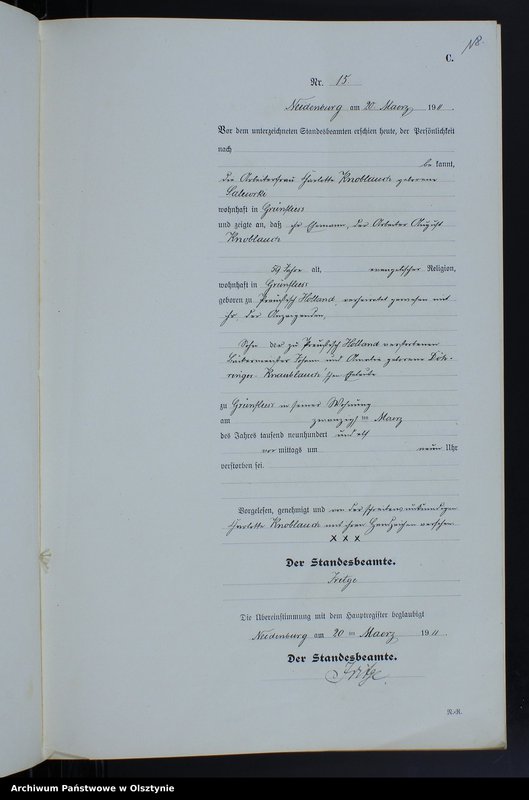 C.
Nr. 15
Neidenburg am 20 Maerz 1911.
Vor dem unterzeichneten Standesbeamten erschien heute, der Persönlichkeit
nach
be kannt,
die Arbeiterfrau Charlotte Knoblauch geborene
Salewski
wohnhaft in Grünfliess
und zeigte an, daß ihr Ehemann, der Arbeiter August
Knoblauch
Jahre alt, evangelischer Religion,
wohnhaft in Grünfliess
geboren zu Preußisch Holland, verheiratet gewesen mit
ihr der Anzeigenden,
Sohn der zu Preußisch Holland verstorbenen
Bäckermeister Johann und Amalie geborene
Knoblauch'schen Eheleute
zu Grünfliess in seiner Wohnung
am zwanzigsten Maerz
des Jahres tausend neunhundert und elf
vor mittags um neun Uhr
verstorben sei.
Vorgelesen, genehmigt und von der schreibensunkundigen
Charlotte Knoblauch mit ihren Handzeichen versehen
x x x
Der Standesbeamte.
Fritze
Die Übereinstimmung mit dem Hauptregister beglaubigt
Neidenburg am 20 ten Maerz 1911.
Der Standesbeamte.
Fritze.
N.-R.
Archiwum Państwowe w Olsztynie